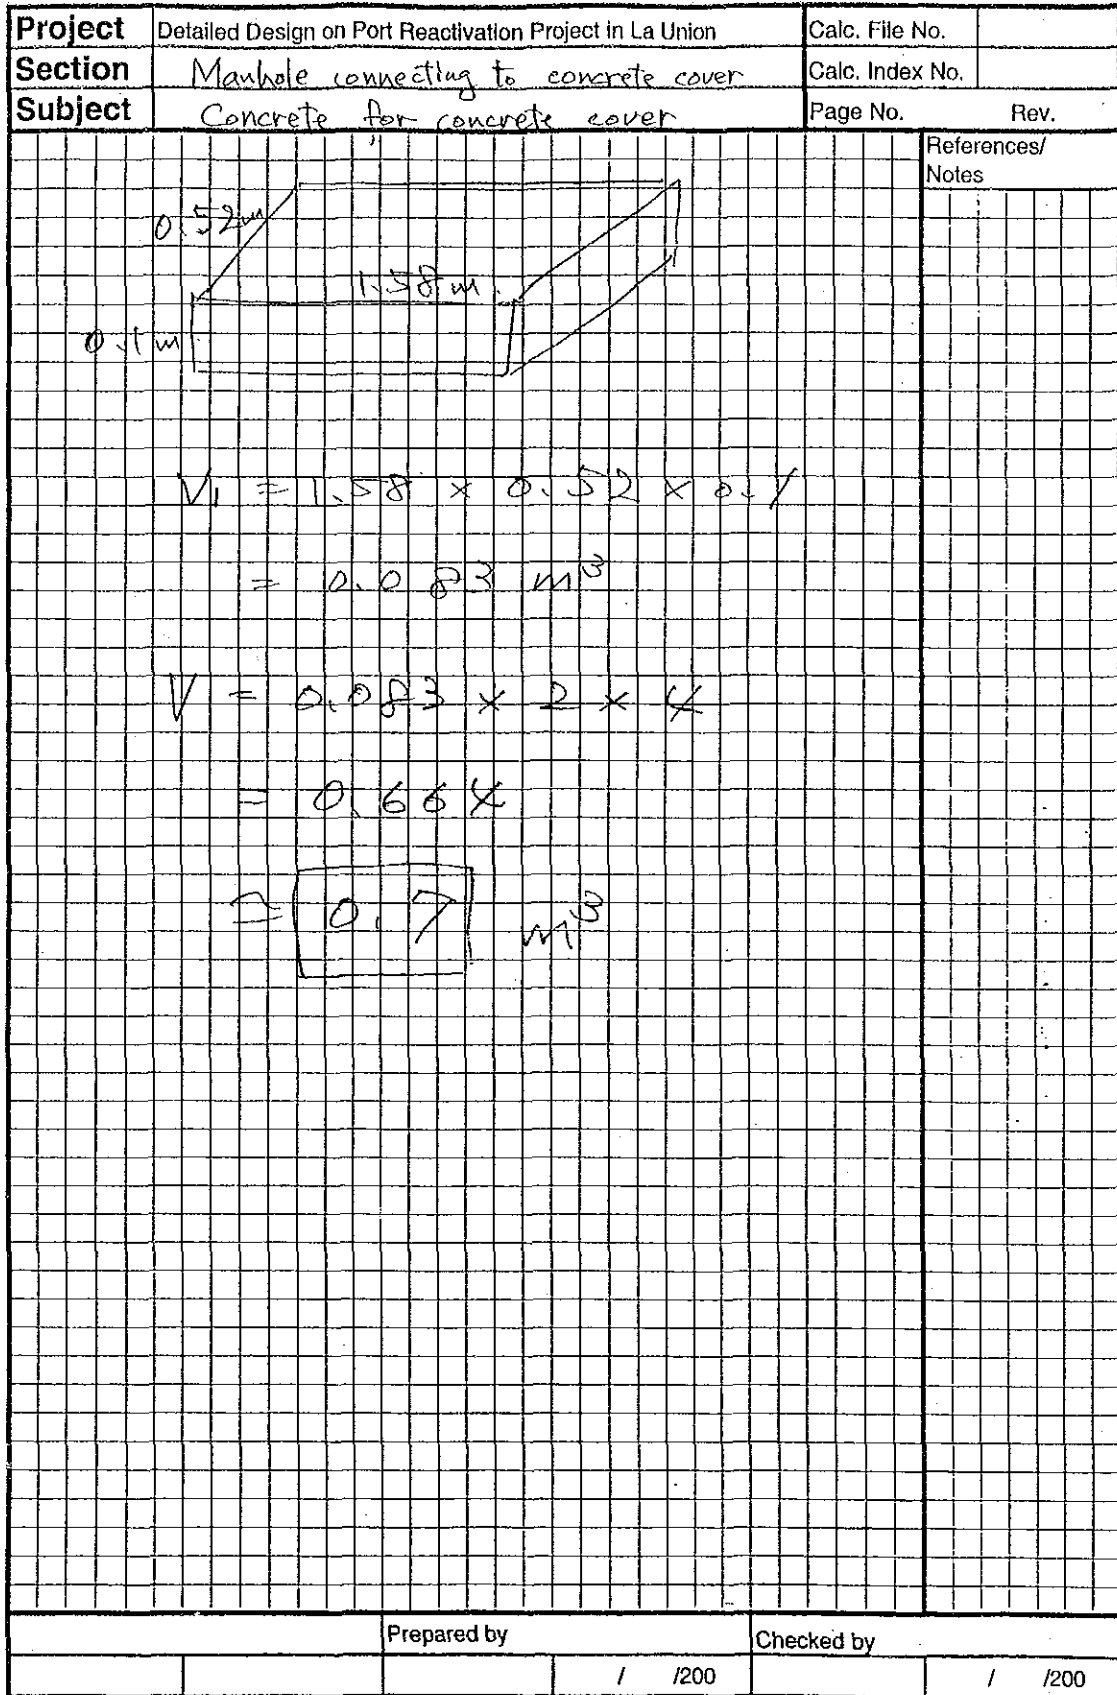 Project Detailed Design on Port Reactivation Project in La Union Calc. File No.
Section Manhole connecting to concrete cover Calc. Index No.
Subject Concrete for concrete cover Page No. Rev.
References/
Notes
0.52m
1.58m
0.1m
V₁ = 1.58 × 0.52 × 0.1
= 0.083 m³
V = 0.083 × 2 × 4
= 0.664
≃ 0.7 m³
Prepared by Checked by
/ /200 / /200